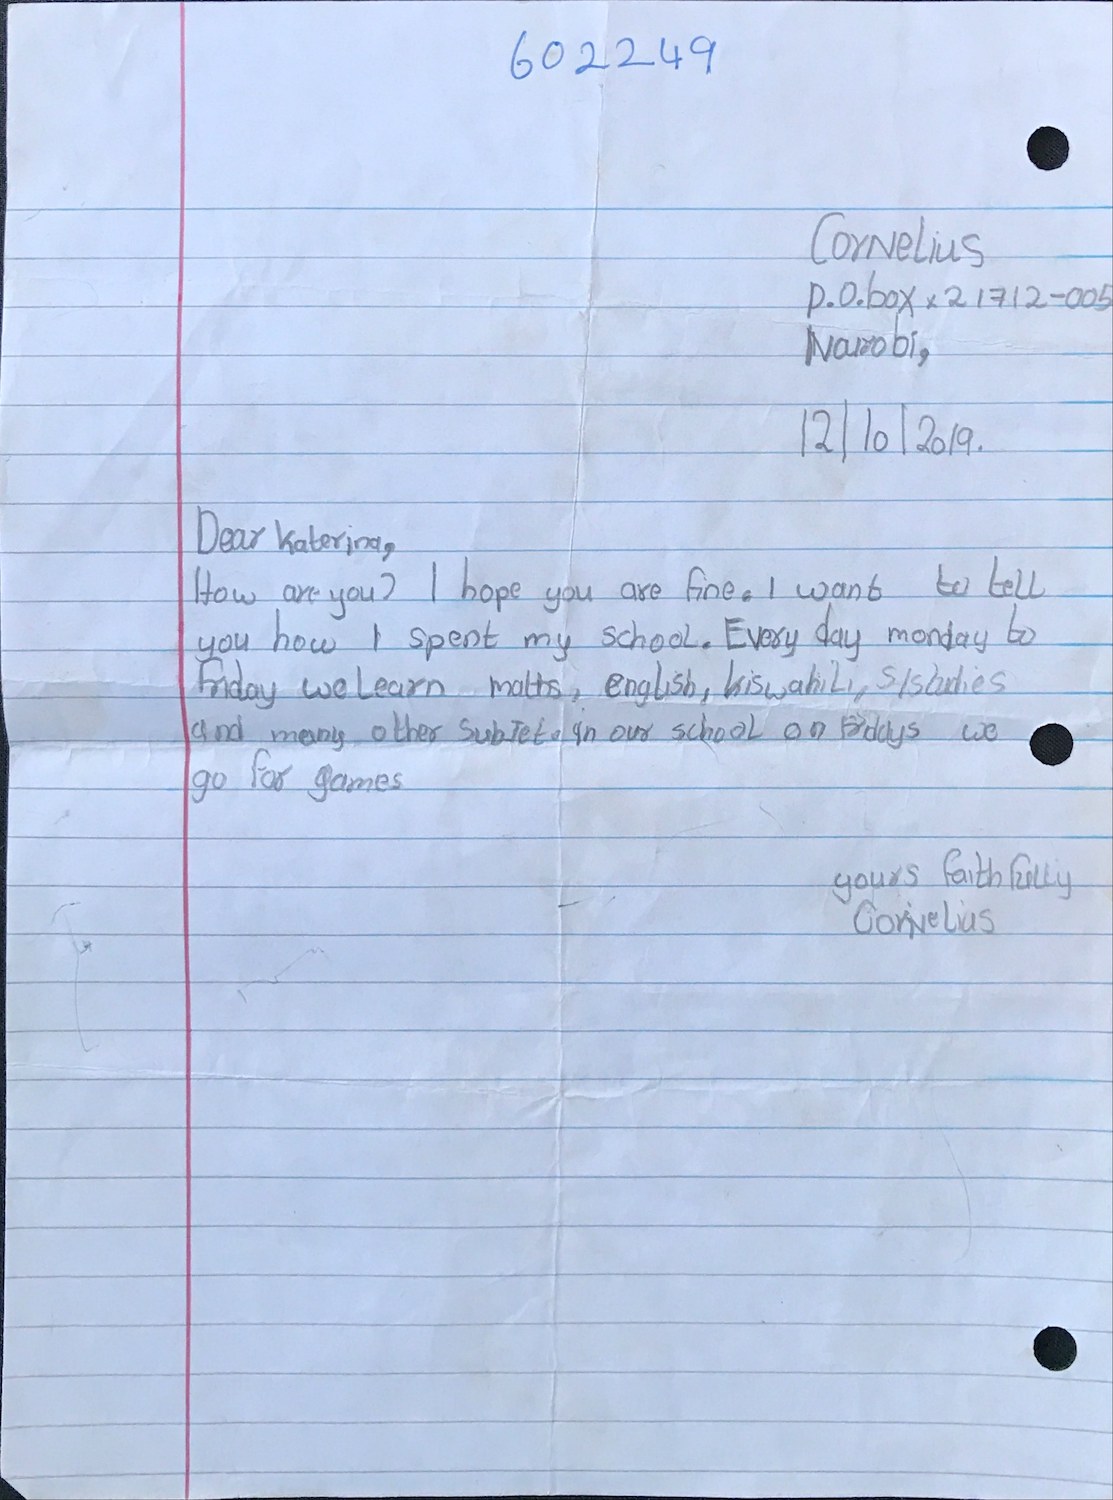 602249
Cornelius
P.O.box x 21712-005
Nairobi,
12/10/2019.
Dear Katerina,
How are you? I hope you are fine. I want to tell
you how I spent my school. Every day monday to
Friday we Learn maths, english, kiswahili, s/studies
and many other subJet. in our school on Fridays we
go for games
yours faithfully
Cornelius